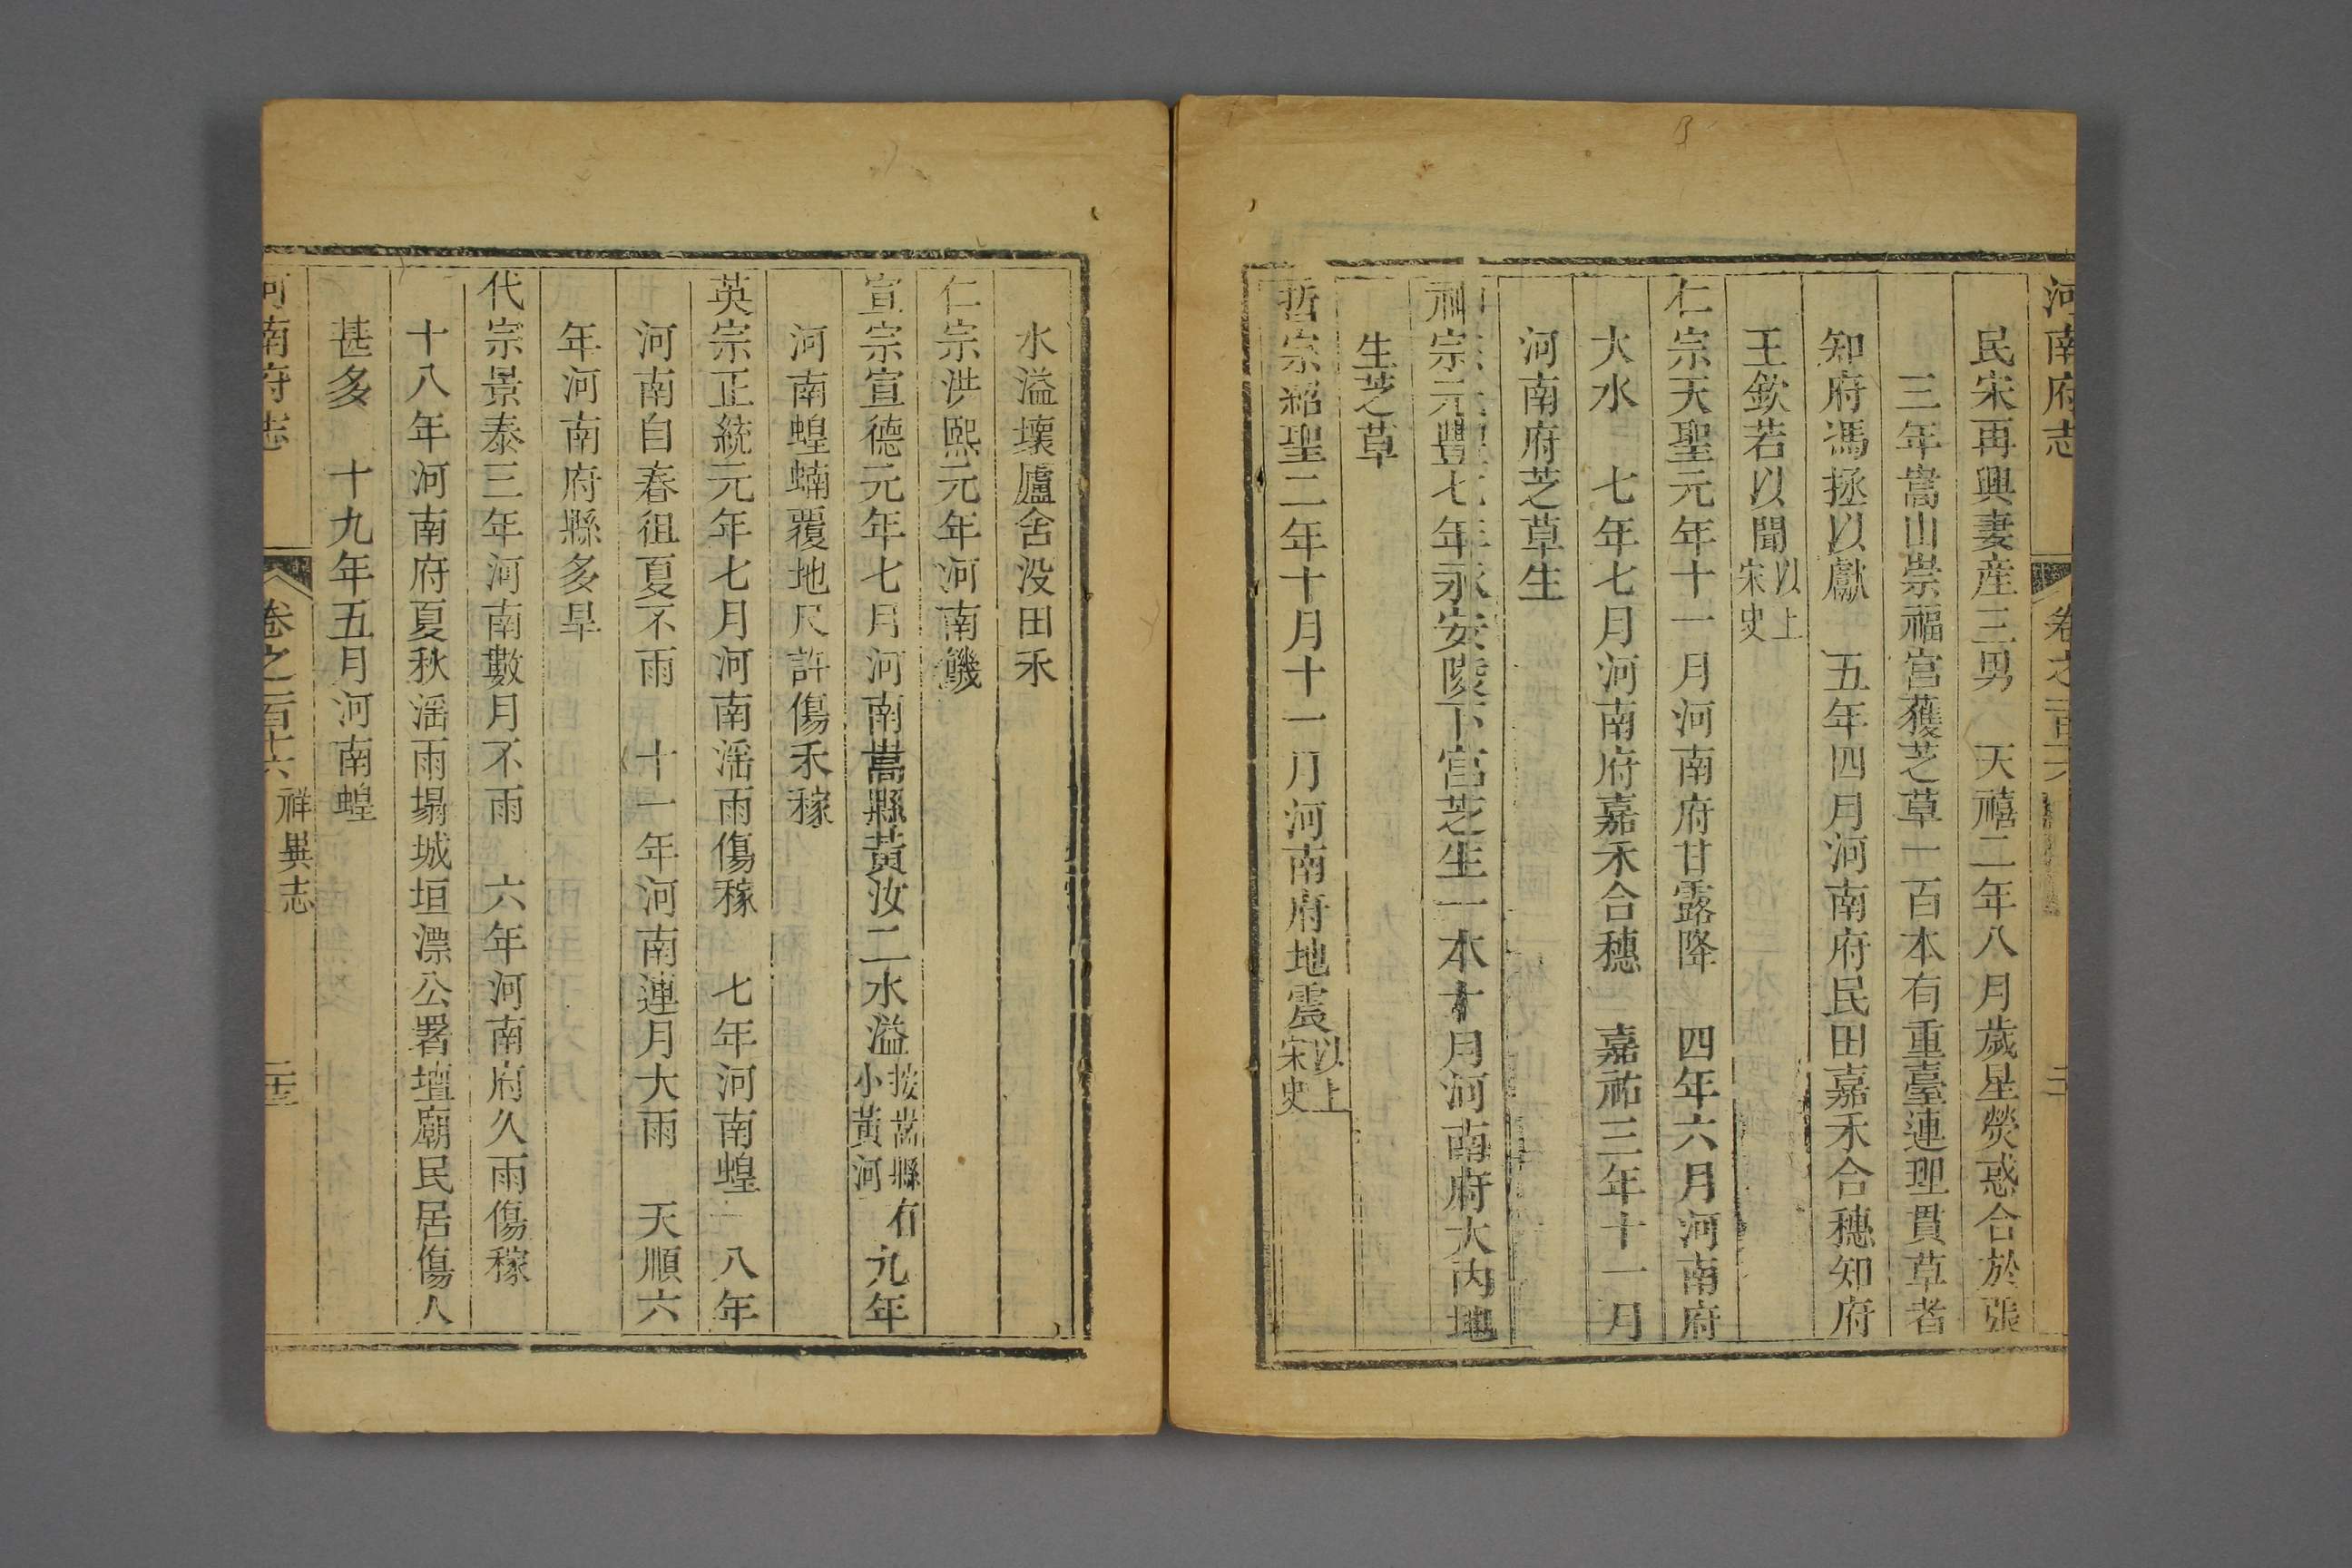 河南府志 卷之一百十六
民宋再興妻産三男 天禧二年八月歲星熒惑合於張
三年嵩山崇福宮獲芝草一百本有重臺連理貫草者
知府馮拯以獻 五年四月河南府民田嘉禾合穗知府
王欽若以聞以上宋史
仁宗天聖元年十一月河南府甘露降 四年六月河南府
大水 七年七月河南府嘉禾合穗 嘉祐三年十一月
河南府芝草生
神宗元豐七年永安陵下宮芝生一本十月河南府大內地
生芝草
哲宗紹聖二年十月十一月河南府地震以上宋史
水溢壞廬舍没田禾
仁宗洪熙元年河南饑
宣宗宣德元年七月河南嵩縣黃汝二水溢按嵩縣有小黃河 九年
河南蝗蝻覆地尺許傷禾稼
英宗正統元年七月河南滛雨傷稼 七年河南蝗 八年
河南自春徂夏不雨 十一年河南連月大雨 天順六
年河南府縣多旱
代宗景泰三年河南數月不雨 六年河南府久雨傷稼
十八年河南府夏秋滛雨塌城垣漂公署壇廟民居傷人
甚多 十九年五月河南蝗
河南府志 卷之一百十六 祥異志